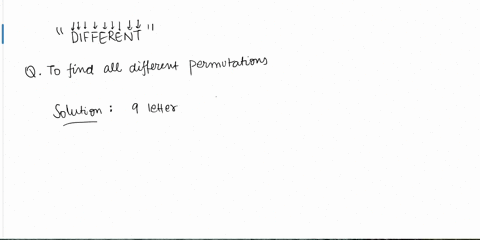 "DIFFERENT"
Q. To find all different permutations
Solution : 9 letter